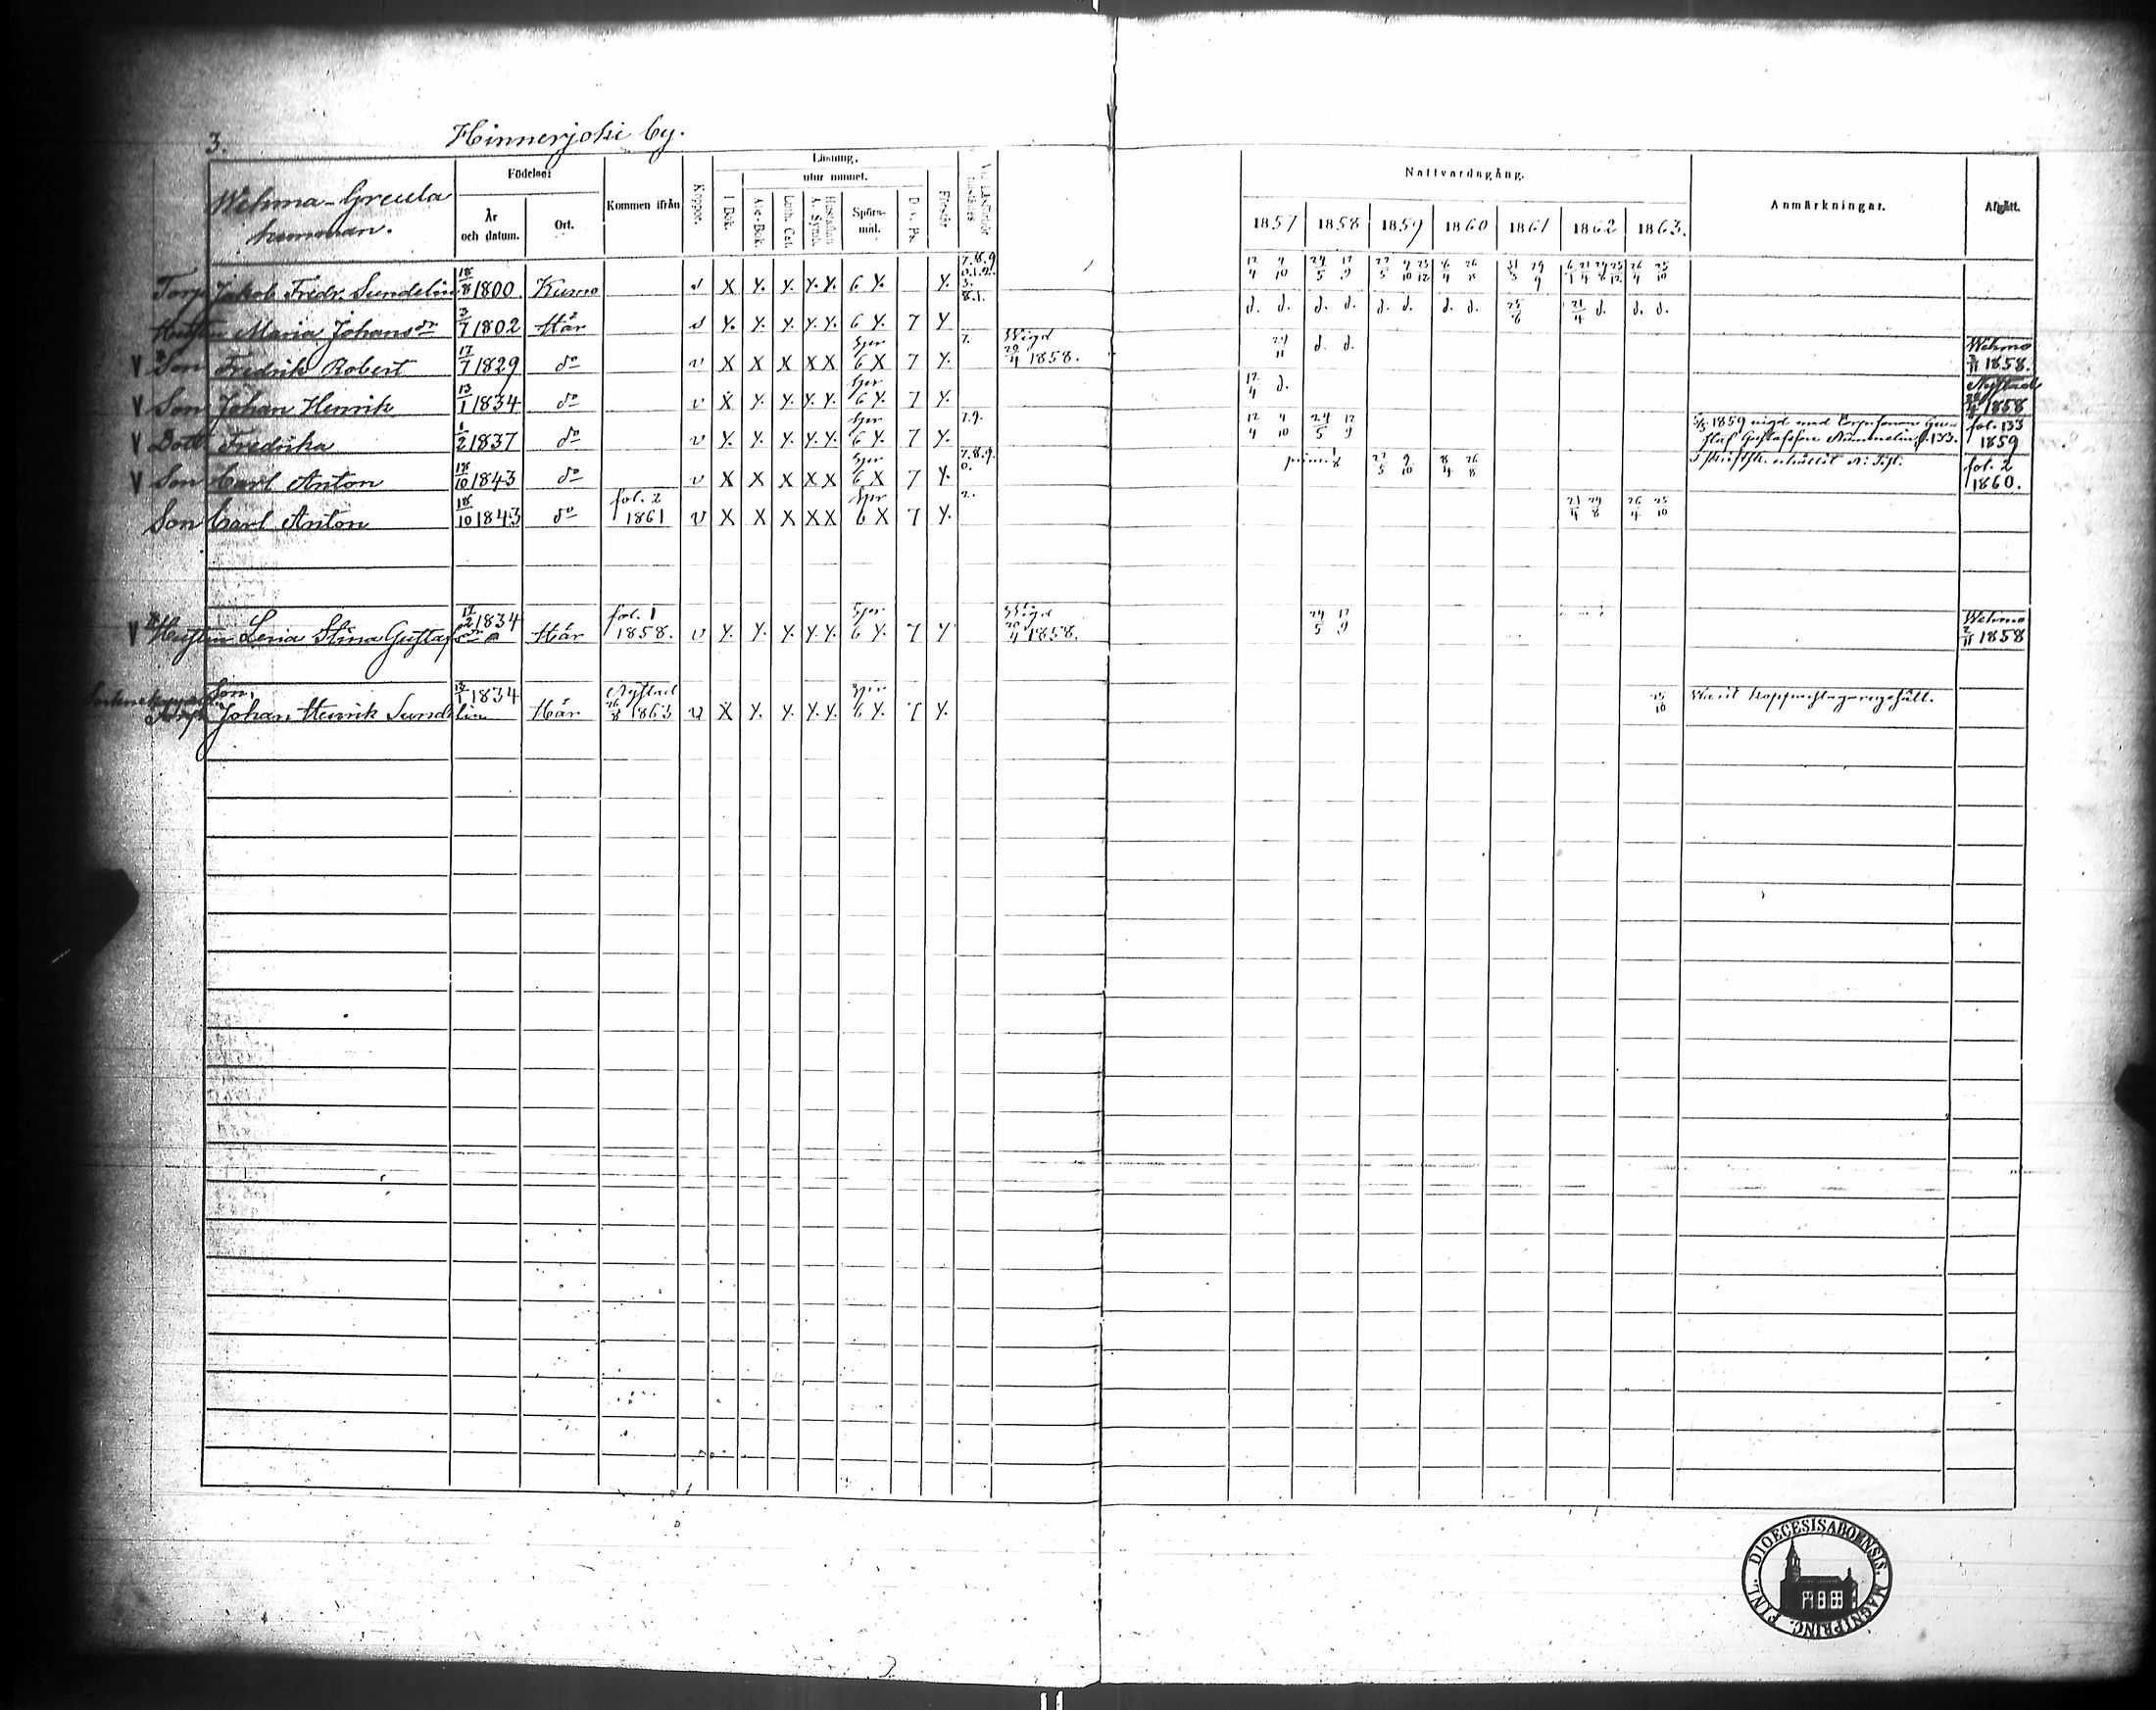 3. Hinnerjoki by.
Wehma-Greula hemman.
Födelse: År och datum. Ort. Kommen ifrån Koppor. Läsning. I Bok. utur minnet. Abc-Bok. Luth. Cat. Hustaflan A. Symb. Spörsmål. Dav. Ps. Förstår
Nattvardsgång. 1857 1858 1859 1860 1861 1862 1863. Anmärkningar. Afgått.
Torp Jakob Fredr. Sundelin 18/8 1800. Kumo s X Y. Y. Y. Y. 6 Y. Y. 7.8.9. 0.1.2. 3. 12/4 4/10 24/5 12/9 22/5 9/10 25/12 8/4 26/8 31/3 29/9 6/1 21/4 24/8 25/12 26/4 25/10
Hustru Maria Johansdr 3/7 1802 Här s Y. Y. Y. Y. Y. 6 Y. 7 Y 8.1. d. d. d. d. d. d. d. d. 25/8 21/4 d. d. d.
V Son Fredrik Robert 17/7 1829 do v X X X X X Spr 6 X 7 Y. 7. Wigd 20/4 1858. 29/11 d. d. Wehmo 2/11 1858.
V Son Johan Henrik 13/1 1834 do v X Y. Y. Y. Y. Spr 6 Y. 7 Y. 12/4 d. Nystad 1858
V Dott Fredrika 1/2 1837 do v Y. Y. Y. Y. Y. Spr 6 Y. 7 Y. 7.9. 12/4 4/10 24/5 12/9 1859 vigd med Torpsonen Gustaf Gustafsson Nummelin f. 133. fol. 133 1859
V Son Carl Anton 18/10 1843 do v X X X X X Spr 6 X 7 Y. 7.8.9. 0. 22/5 9/10 8/4 26/8 fol. 2 1860.
Son Carl Anton 18/10 1843 do fol. 2 1861 v X X X X X Spr 6 X 7 Y. 2. 21/4 29/8 26/4 25/10
V Hustru Lena Stina Gustafsdr 12/2 1834 Här fol. 1 1858. v Y. Y. Y. Y. Y. Spr 6 Y. 7 Y Wigd 20/4 1858. 24/5 12/9 Wehmo 2/11 1858
Son, Johan Henrik Sundelin 13/1 1834 Här Nystad 26/8 1863 v X Y. Y. Y. Y. Spr 6 Y. 7 Y. 25/10 Warit
FINL. DIOECESIS ABOENSIS. MAGNI PRINC.